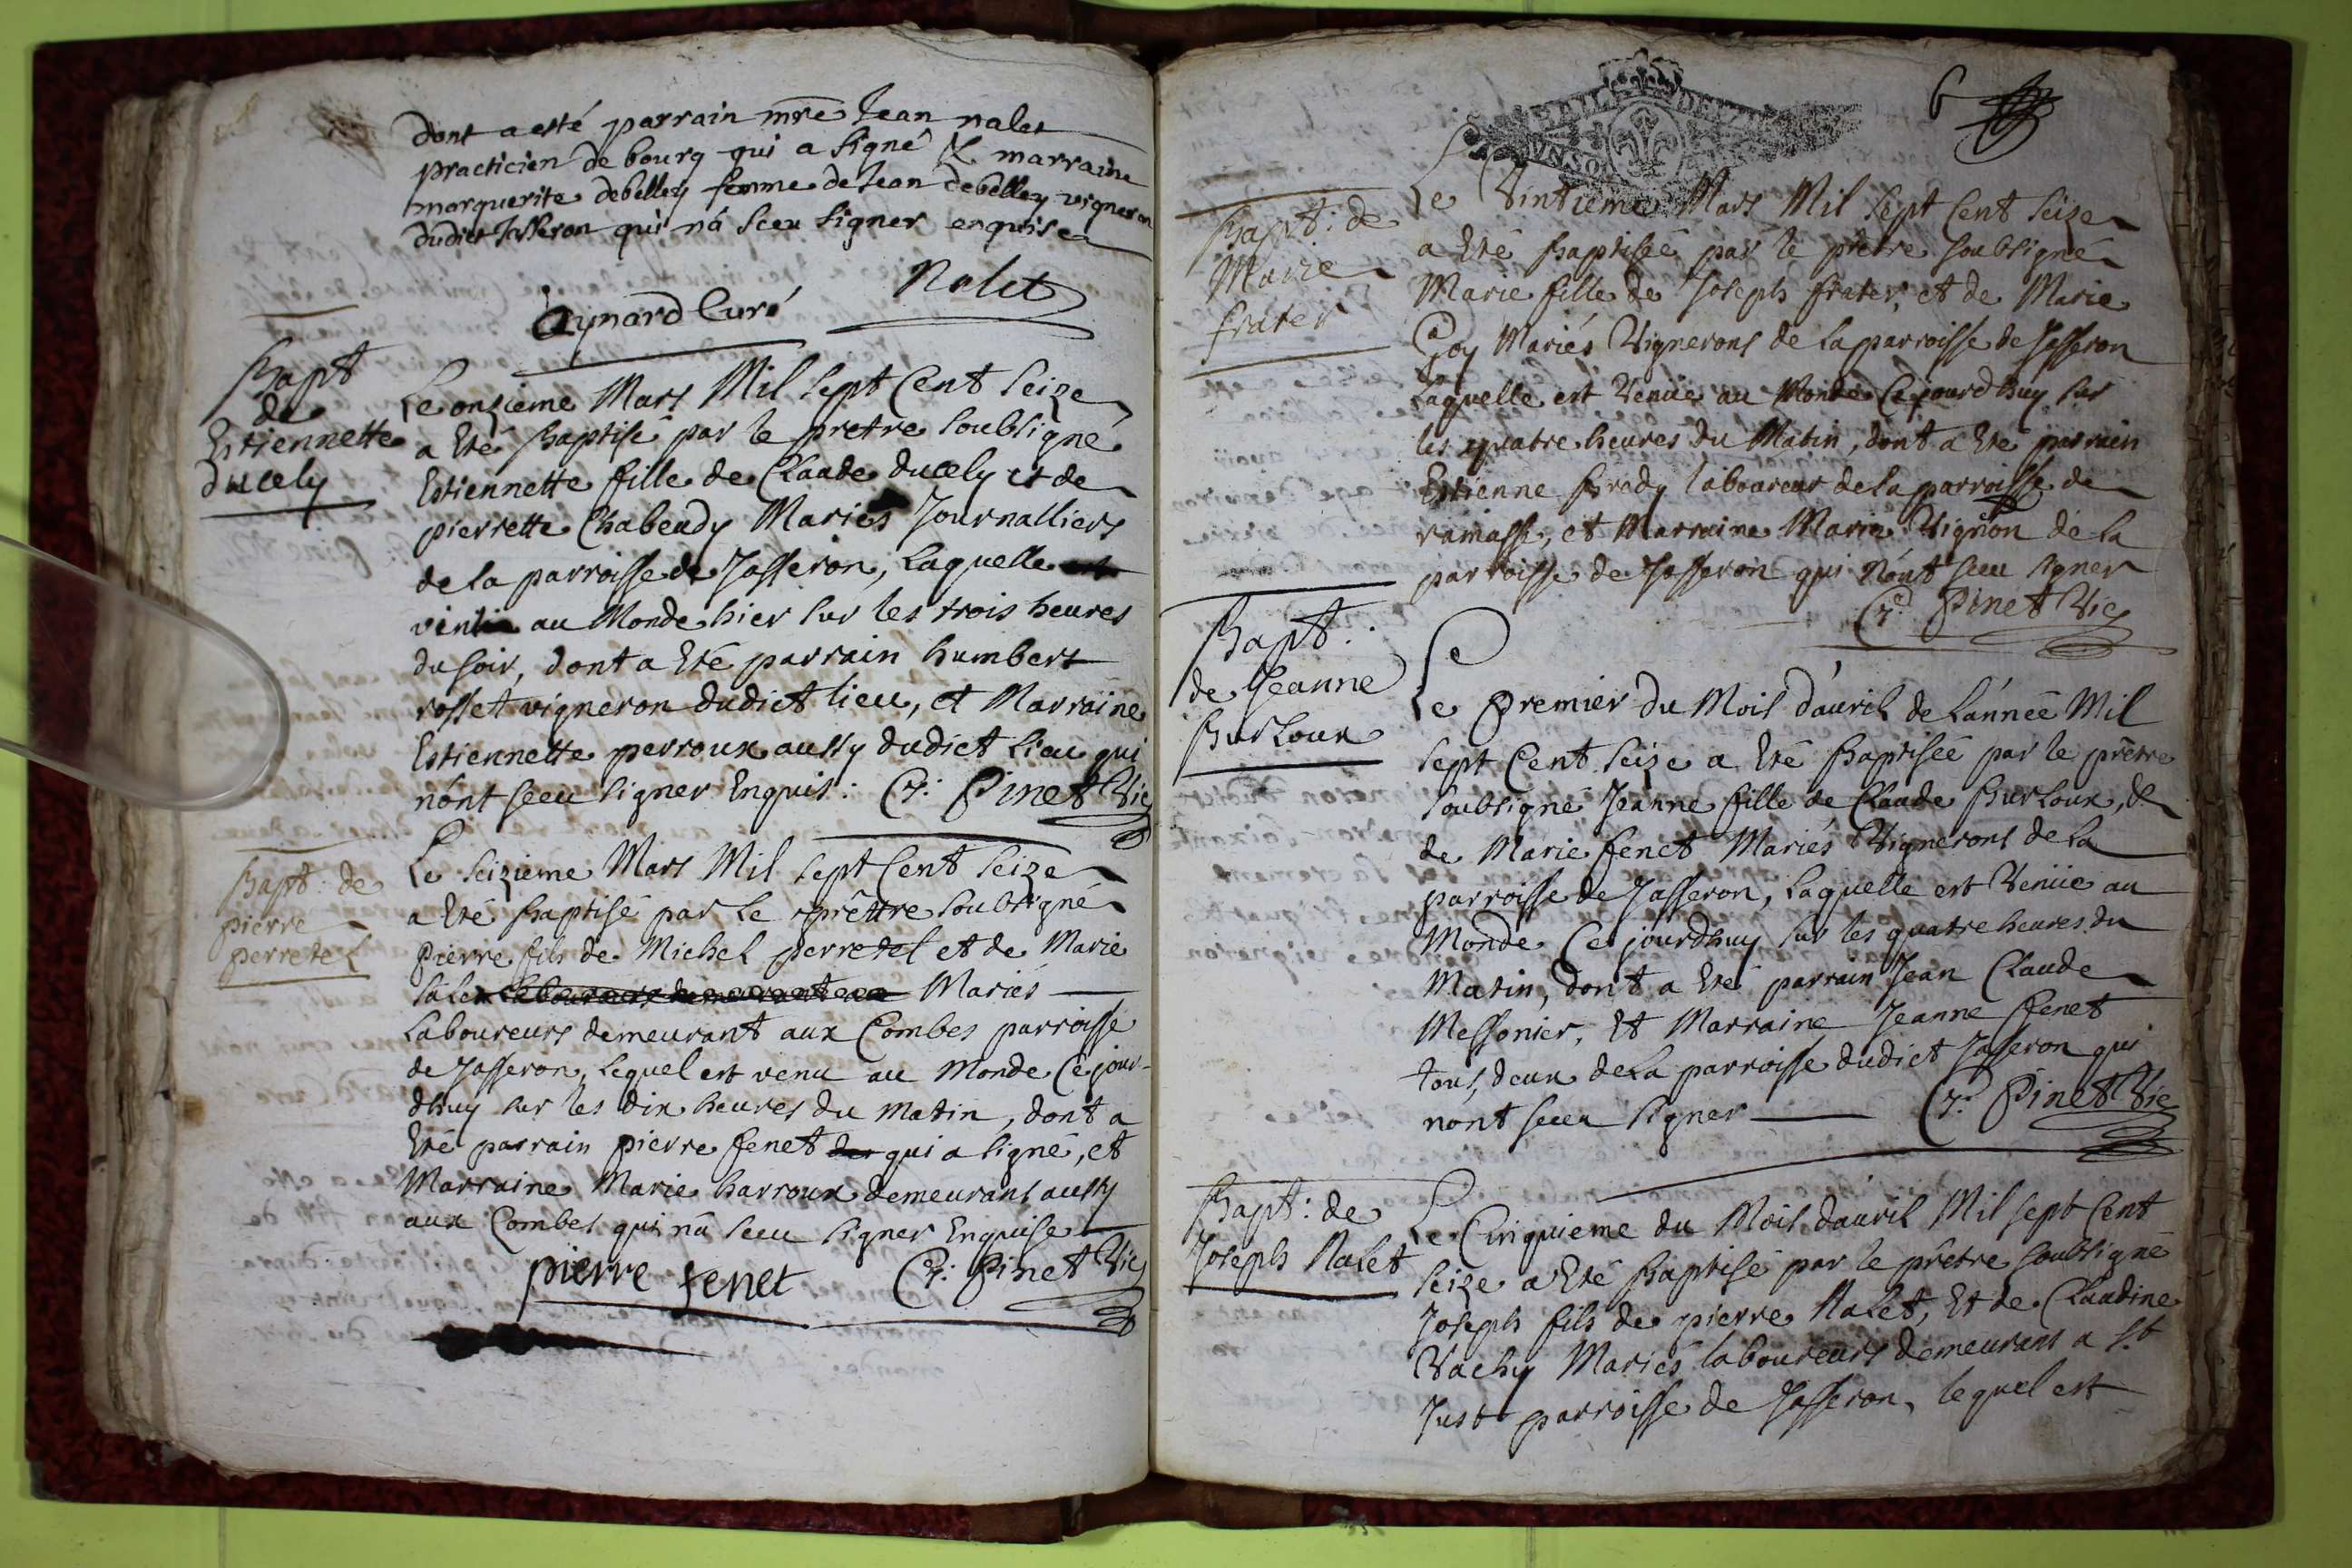 dont a esté parrain mre Jean nalet
practicien de bourg qui a signé & marraine
marguerite debelley femme de Jean debelley vigneron
dudict Jasseron qui n'a sceu signer enquise
Aynard Curé
Nalet
Bapt
de
Estiennette
ducely
Le onzieme Mars Mil sept Cent seize
a Eté Baptisé par le pretre soubsigné
Estiennette fille de Claude ducely et de
pierrette Chabeudy Mariés Journalliers
de la parroisse de Jasseron, Laquelle est
venüe au Monde hier sur les trois heures
du soir, dont a Eté parrain humbert
rosset vigneron dudict lieu, et Marraine
Estiennette perroux aussy dudict Lieu qui
nônt sceu signer Enquis: Cr: Pinet Vic
Bapt: de
pierre
perretel
Le seizieme Mars Mil sept Cent seize
a Eté Baptisé par Le prêttre soubsigné
Pierre fils de Michel perretel et de Marie
Mariés
Laboureurs demeurant aux Combes parroisse
de Jasseron, Lequel est venu au Monde Ce jour-
dhuy sur les dix heures du Matin, dont a
Eté parrain pierre fenet qui a signé, et
Marraine Marie harroux demeurant aussy
aux Combes qui nâ sceu signer Enquise
pierre fenet Cr: Pinet Vic
6
Bapt: de
Marie
frater
Le Vintieme Mars Mil sept Cent seize
a Eté Baptiséé par le prêtre soubsigné
Marie fille de Joseph frater, et de Marie
Goy Mariés Vignerons de la parroisse de Jasseron
Laquelle est Venüe au Monde Ce jourdhuy sur
les quatre heures du Matin, dont a Eté parrain
Estienne Brédy laboureur de la parroisse de
ramasse, et Marraine Marie Vignon de la
parroisse de Jasseron qui nônt sceu signer
Cr: Pinet Vic
Bapt:
de Jeanne
Burloux
Le Premier du Mois d'auril de L'année Mil
sept Cent seize a Eté Baptiséé par le prêtre
soubsigné Jeanne fille de Claude Burloux, &
de Marie fenet Mariés Vignerons de La
parroisse de Jasseron, Laquelle est Venüe au
Monde Ce jourdhuy sur les quatre heures du
Matin, dont a Eté parrain Jean Claude
Messonier, Et Marraine Jeanne fenet
tous deux de La parroisse dudict Jasseron qui
nônt sceu signer Cr: Pinet Vic
Bapt: de
Joseph Nalet
Le Cinquieme du Mois dauril Mil sept Cent
seize a Eté Baptisé par le prêtre soubsigné
Joseph fils de pierre Nalet, Et de Claudine
Vachy Mariés laboureurs demeurans a St
Just parroisse de Jasseron, lequel est